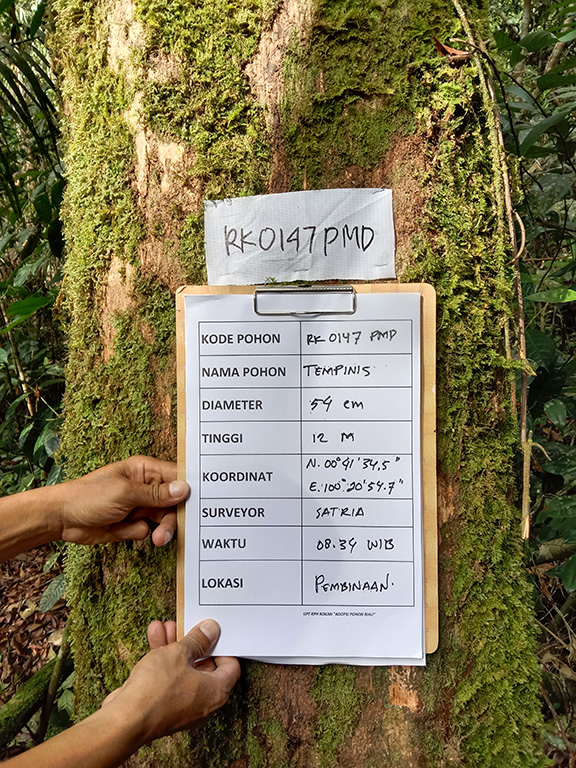 RK0147PMD
KODE POHON RK 0147 PMD
NAMA POHON TEMPINIS
DIAMETER 54 cm
TINGGI 12 M
KOORDINAT N. 00°41'34,5"
E. 100°20'54.7"
SURVEYOR SATRIA
WAKTU 08.34 WIB
LOKASI PEMBINAAN.
UPT KPH ROKAN "ADOPSI POHON RIAU"